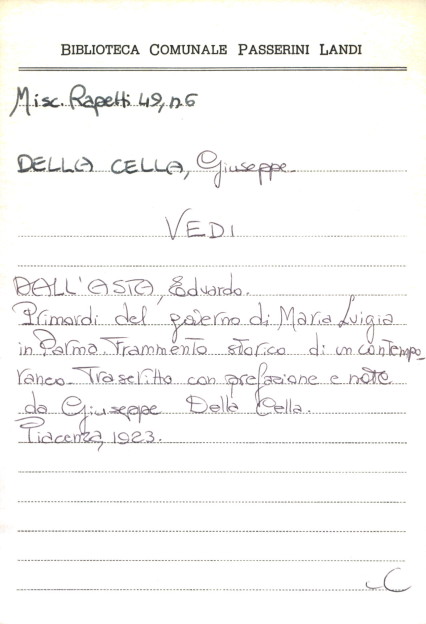 BIBLIOTECA COMUNALE PASSERINI LANDI
Misc. Rapetti 49, n.6
DELLA CELLA, Giuseppe.
VEDI
DALL'ASTA, Eduardo.
Primordi del governo di Maria Luigia
in Parma. Frammento storico di un contempo_
raneo. Trascritto con prefazione e note
da Giuseppe Della Cella.
Piacenza, 1923.
C